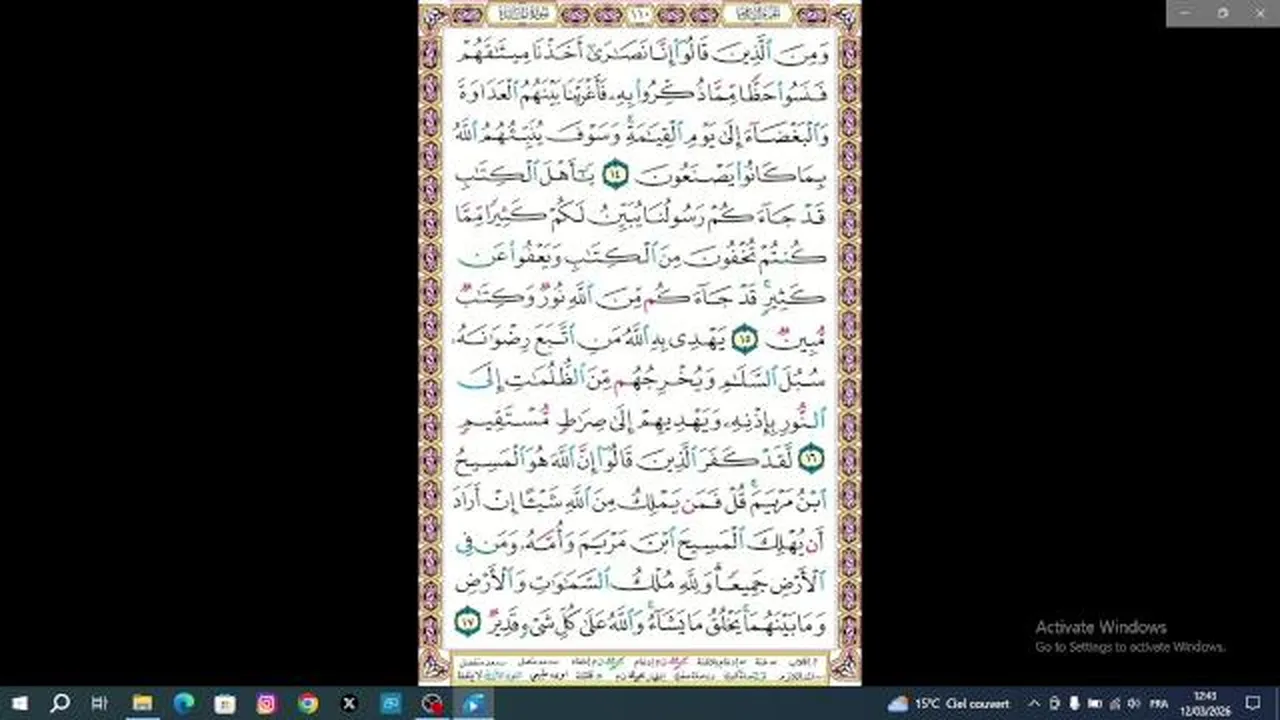 سورة المائدة ١١٠ الجزء السادس
وَمِنَ ٱلَّذِينَ قَالُوٓا۟ إِنَّا نَصَـٰرَىٰٓ أَخَذْنَا مِيثَـٰقَهُمْ
فَنَسُوا۟ حَظًّا مِّمَّا ذُكِّرُوا۟ بِهِۦ فَأَغْرَيْنَا بَيْنَهُمُ ٱلْعَدَاوَةَ
وَٱلْبَغْضَآءَ إِلَىٰ يَوْمِ ٱلْقِيَـٰمَةِ ۚ وَسَوْفَ يُنَبِّئُهُمُ ٱللَّهُ
بِمَا كَانُوا۟ يَصْنَعُونَ ١٤ يَـٰٓأَهْلَ ٱلْكِتَـٰبِ
قَدْ جَآءَكُمْ رَسُولُنَا يُبَيِّنُ لَكُمْ كَثِيرًا مِّمَّا
كُنتُمْ تُخْفُونَ مِنَ ٱلْكِتَـٰبِ وَيَعْفُوا۟ عَن
كَثِيرٍ ۚ قَدْ جَآءَكُم مِّنَ ٱللَّهِ نُورٌ وَكِتَـٰبٌ
مُّبِينٌ ١٥ يَهْدِى بِهِ ٱللَّهُ مَنِ ٱتَّبَعَ رِضْوَٰنَهُۥ
سُبُلَ ٱلسَّلَـٰمِ وَيُخْرِجُهُم مِّنَ ٱلظُّلُمَـٰتِ إِلَى
ٱلنُّورِ بِإِذْنِهِۦ وَيَهْدِيهِمْ إِلَىٰ صِرَٰطٍ مُّسْتَقِيمٍ
١٦ لَّقَدْ كَفَرَ ٱلَّذِينَ قَالُوٓا۟ إِنَّ ٱللَّهَ هُوَ ٱلْمَسِيحُ
ٱبْنُ مَرْيَمَ ۚ قُلْ فَمَن يَمْلِكُ مِنَ ٱللَّهِ شَيْـًٔا إِنْ أَرَادَ
أَن يُهْلِكَ ٱلْمَسِيحَ ٱبْنَ مَرْيَمَ وَأُمَّهُۥ وَمَن فِى
ٱلْأَرْضِ جَمِيعًا ۗ وَلِلَّهِ مُلْكُ ٱلسَّمَـٰوَٰتِ وَٱلْأَرْضِ
وَمَا بَيْنَهُمَا ۚ يَخْلُقُ مَا يَشَآءُ ۚ وَٱللَّهُ عَلَىٰ كُلِّ شَىْءٍ قَدِيرٌ ١٧
Activate Windows
Go to Settings to activate Windows.
15°C Ciel couvert FRA 12:43
12/03/2026